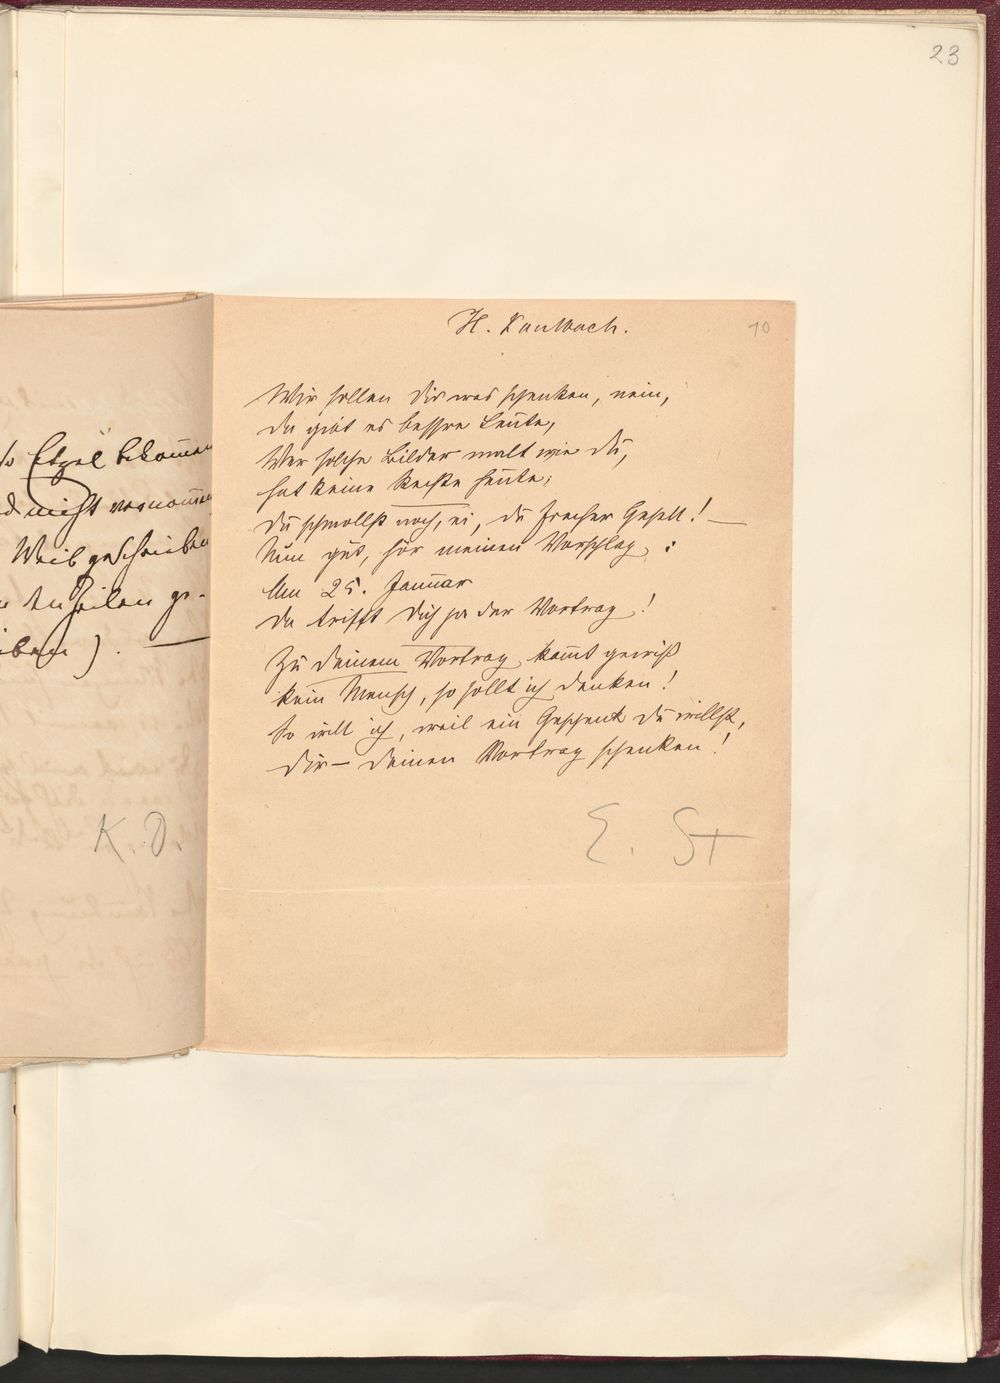 23
H. Kaulbach.
10
Wir sollen Dir was schenken, nein,
Da gibt es bessre Leute,
Wer solche Bilder malt wie Du,
hat keine Rechte heute;
Du schmollst noch, ei, Du frecher Gesell! —
Nun gut, hör meinen Vorschlag:
Am 25. Januar
Da trifft Dich ja der Vortrag!
Zu Deinem Vortrag kommt gewiß
kein Mensch, so sollt ich denken!
So will ich, weil ein Geschenk Du willst,
Dir — Deinen Vortrag schenken!
E. St
so Etzel bekommen
nicht vernommen
Weib geschrieben
K. D.